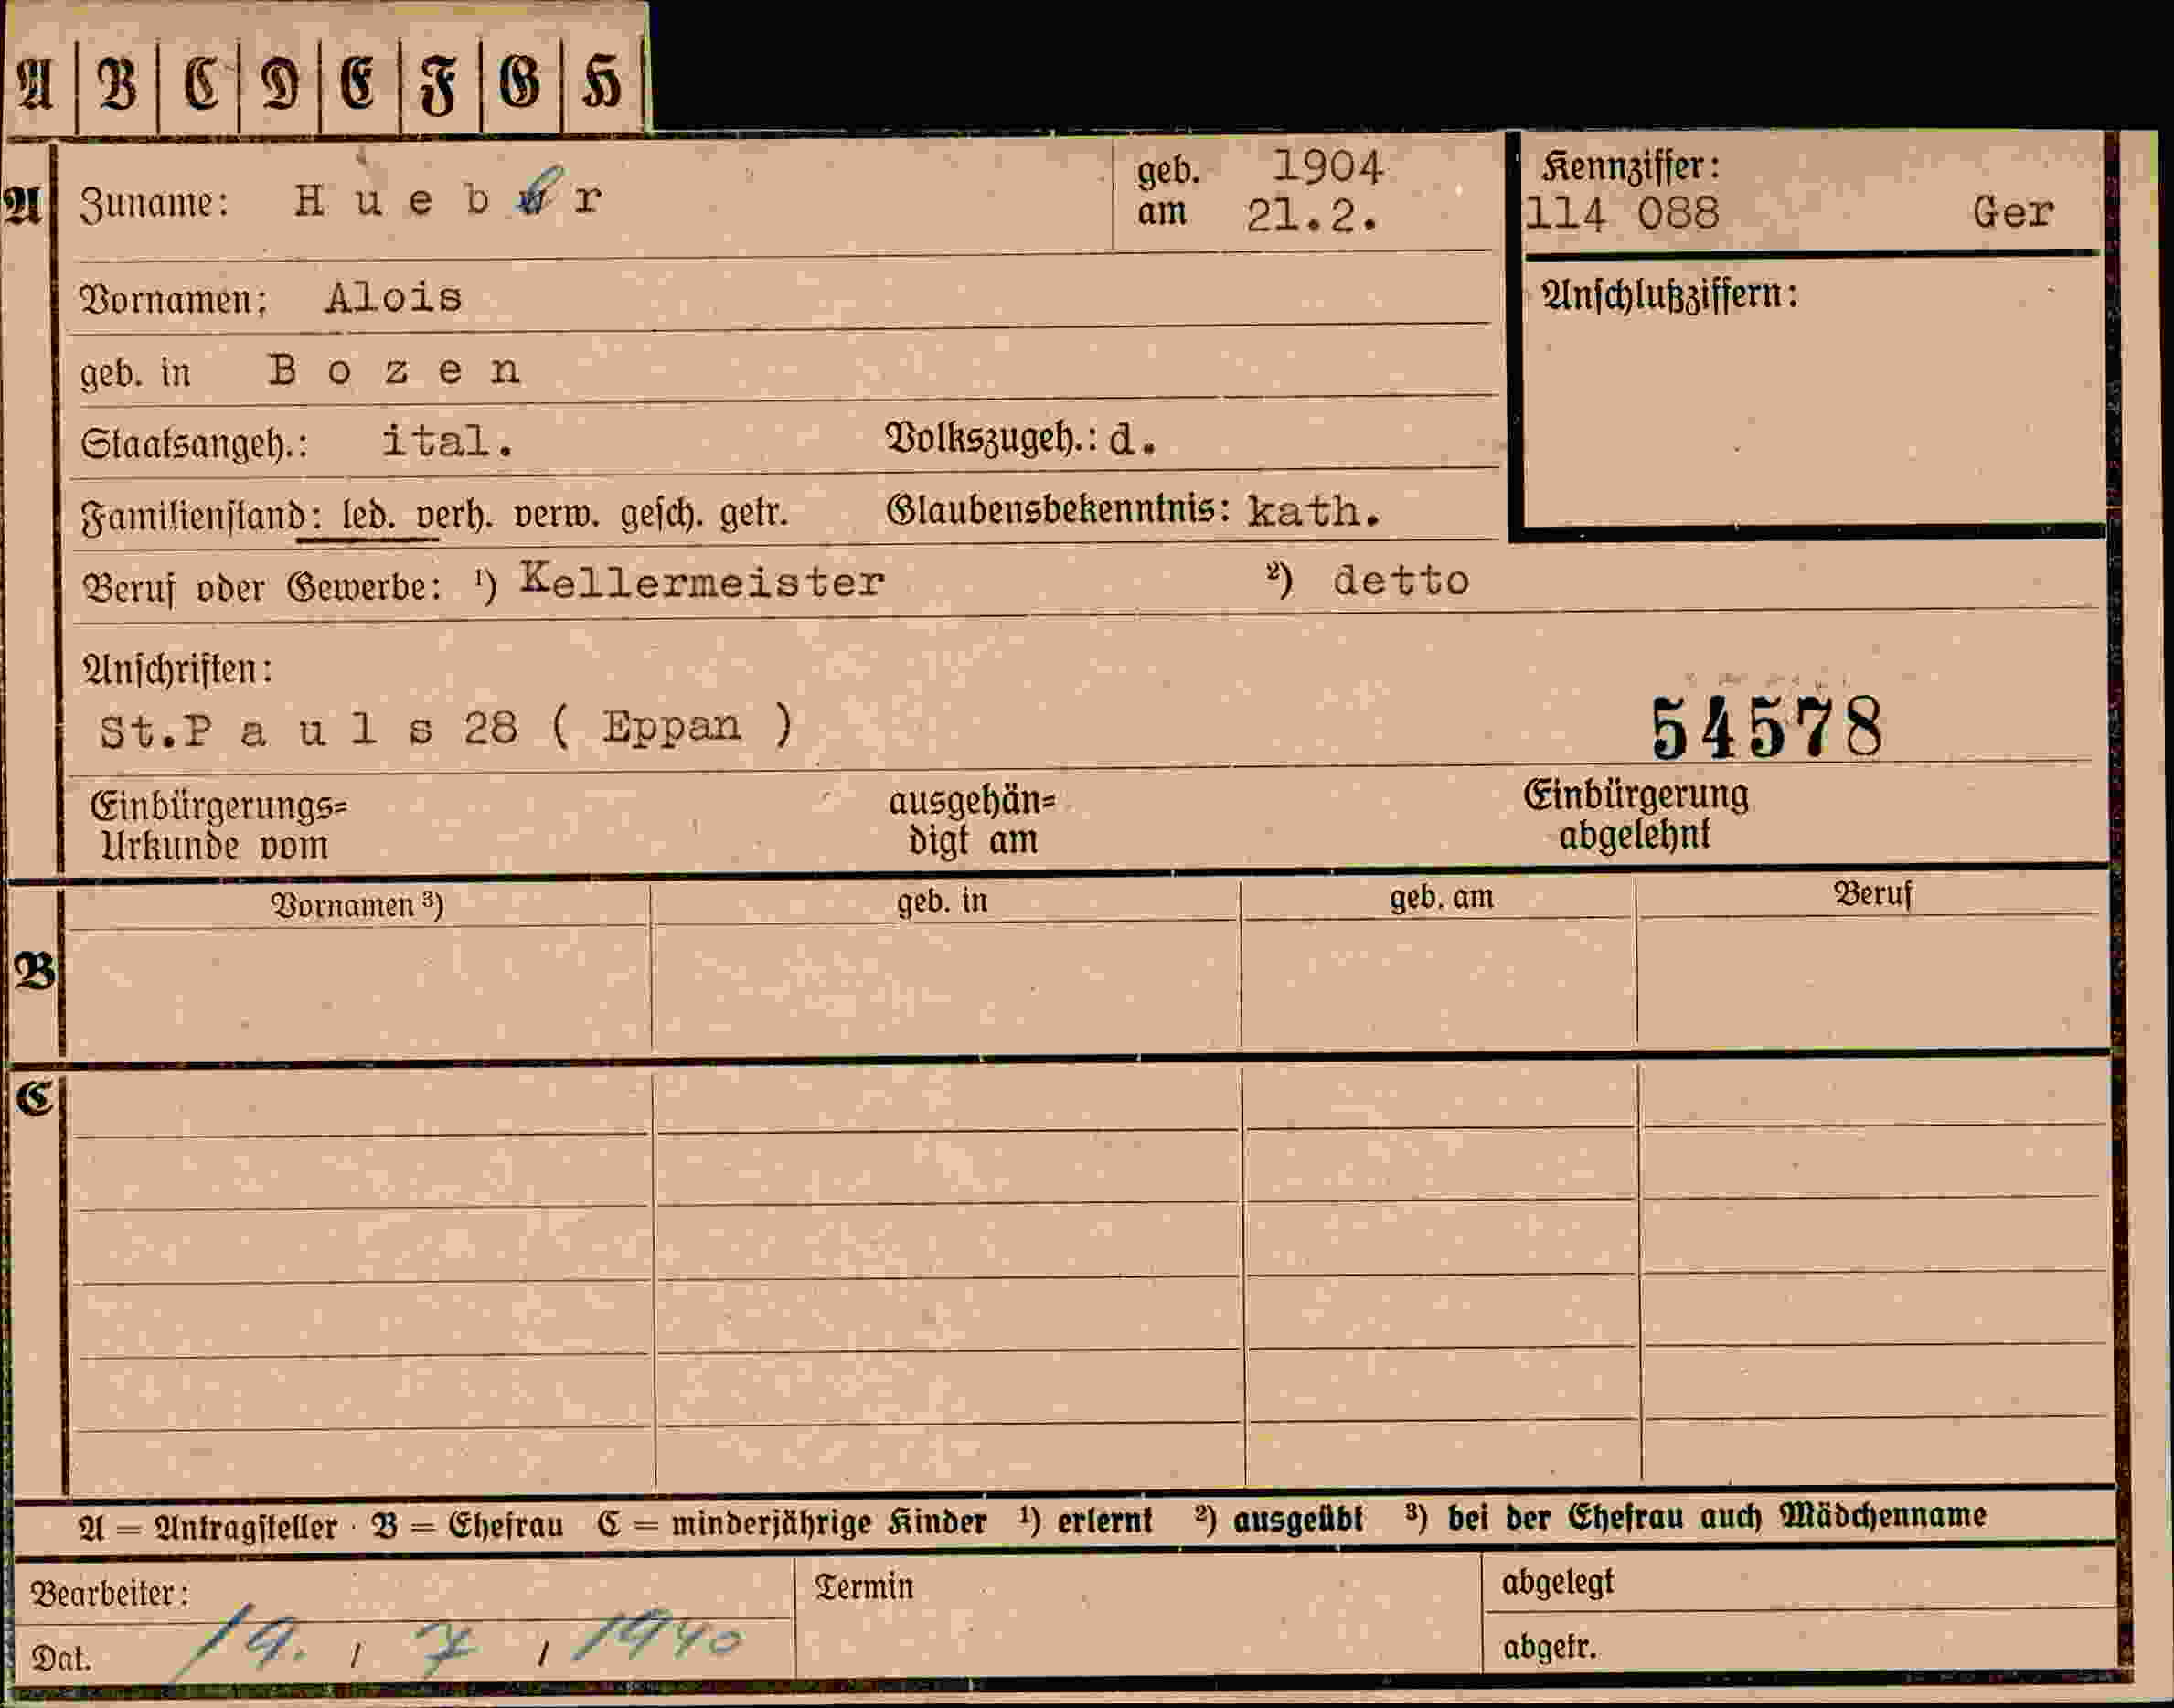 A B C D E F G H
A Zuname: H u e b e r geb. am 1904 21.2. Kennziffer: 114 088 Ger
Vornamen: Alois Anschlußziffern:
geb. in B o z e n
Staatsangeh.: ital. Volkszugeh.: d.
Familienstand: led. verh. verw. gesch. getr. Glaubensbekenntnis: kath.
Beruf oder Gewerbe: ¹) Kellermeister ²) detto
Anschriften:
St.P a u l s 28 ( Eppan ) 54578
Einbürgerungs= ausgehän= Einbürgerung
Urkunde vom digt am abgelehnt
Vornamen ³) geb. in geb. am Beruf
B
C
A = Antragsteller · B = Ehefrau C = minderjährige Kinder ¹) erlernt ²) ausgeübt ³) bei der Ehefrau auch Mädchenname
Bearbeiter: Termin abgelegt
Dat. 19. / 7 / 1940 abgetr.